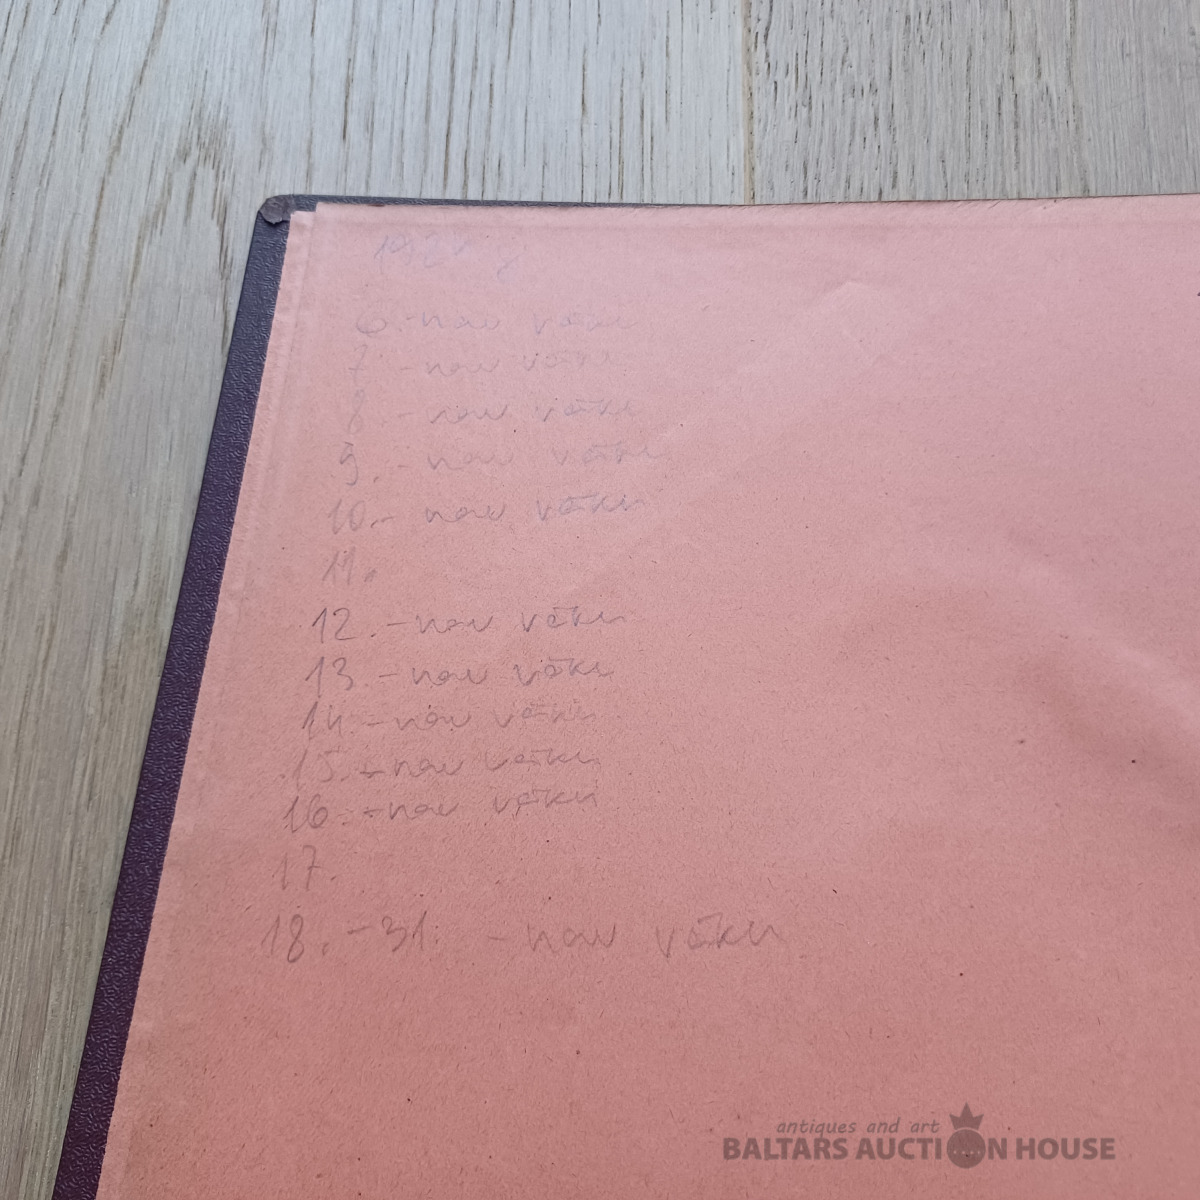 6. - nav vāku
7. - nav vāku
8. - nav vāku
9. - nav vāku
10. - nav vāku
11.
12. - nav vāku
13. - nav vāku
14. - nav vāku
15. - nav vāku
16. - nav vāku
17.
18. - 31. - nav vāku
antiques and art
BALTARS AUCTION HOUSE